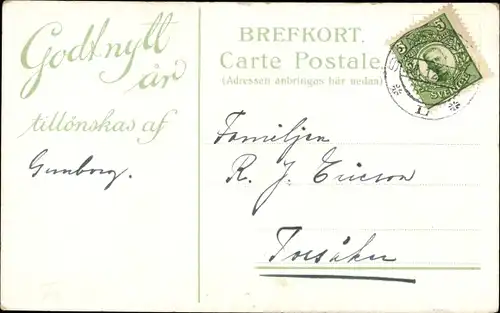 Godt nytt
år
tillönskas af
Gunborg.
BREFKORT.
Carte Postale.
(Adressen anbringas här nedan)
5
5
SVERIGE
Familjen
R. J. Ericson
Torsåker